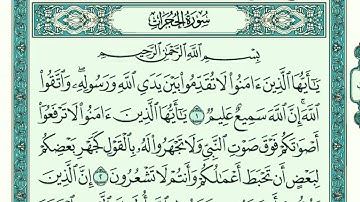 سُورَةُ الحُجُرَاتِ
بِسْمِ اللَّهِ الرَّحْمَٰنِ الرَّحِيمِ
يَا أَيُّهَا الَّذِينَ ءَامَنُوا لَا تُقَدِّمُوا بَيْنَ يَدَيِ اللَّهِ وَرَسُولِهِ ۖ وَاتَّقُوا
اللَّهَ ۚ إِنَّ اللَّهَ سَمِيعٌ عَلِيمٌ ١ يَا أَيُّهَا الَّذِينَ ءَامَنُوا لَا تَرْفَعُوا
أَصْوَاتَكُمْ فَوْقَ صَوْتِ النَّبِيِّ وَلَا تَجْهَرُوا لَهُ بِالْقَوْلِ كَجَهْرِ بَعْضِكُمْ
لِبَعْضٍ أَنْ تَحْبَطَ أَعْمَالُكُمْ وَأَنْتُمْ لَا تَشْعُرُونَ ٢ إِنَّ الَّذِينَ